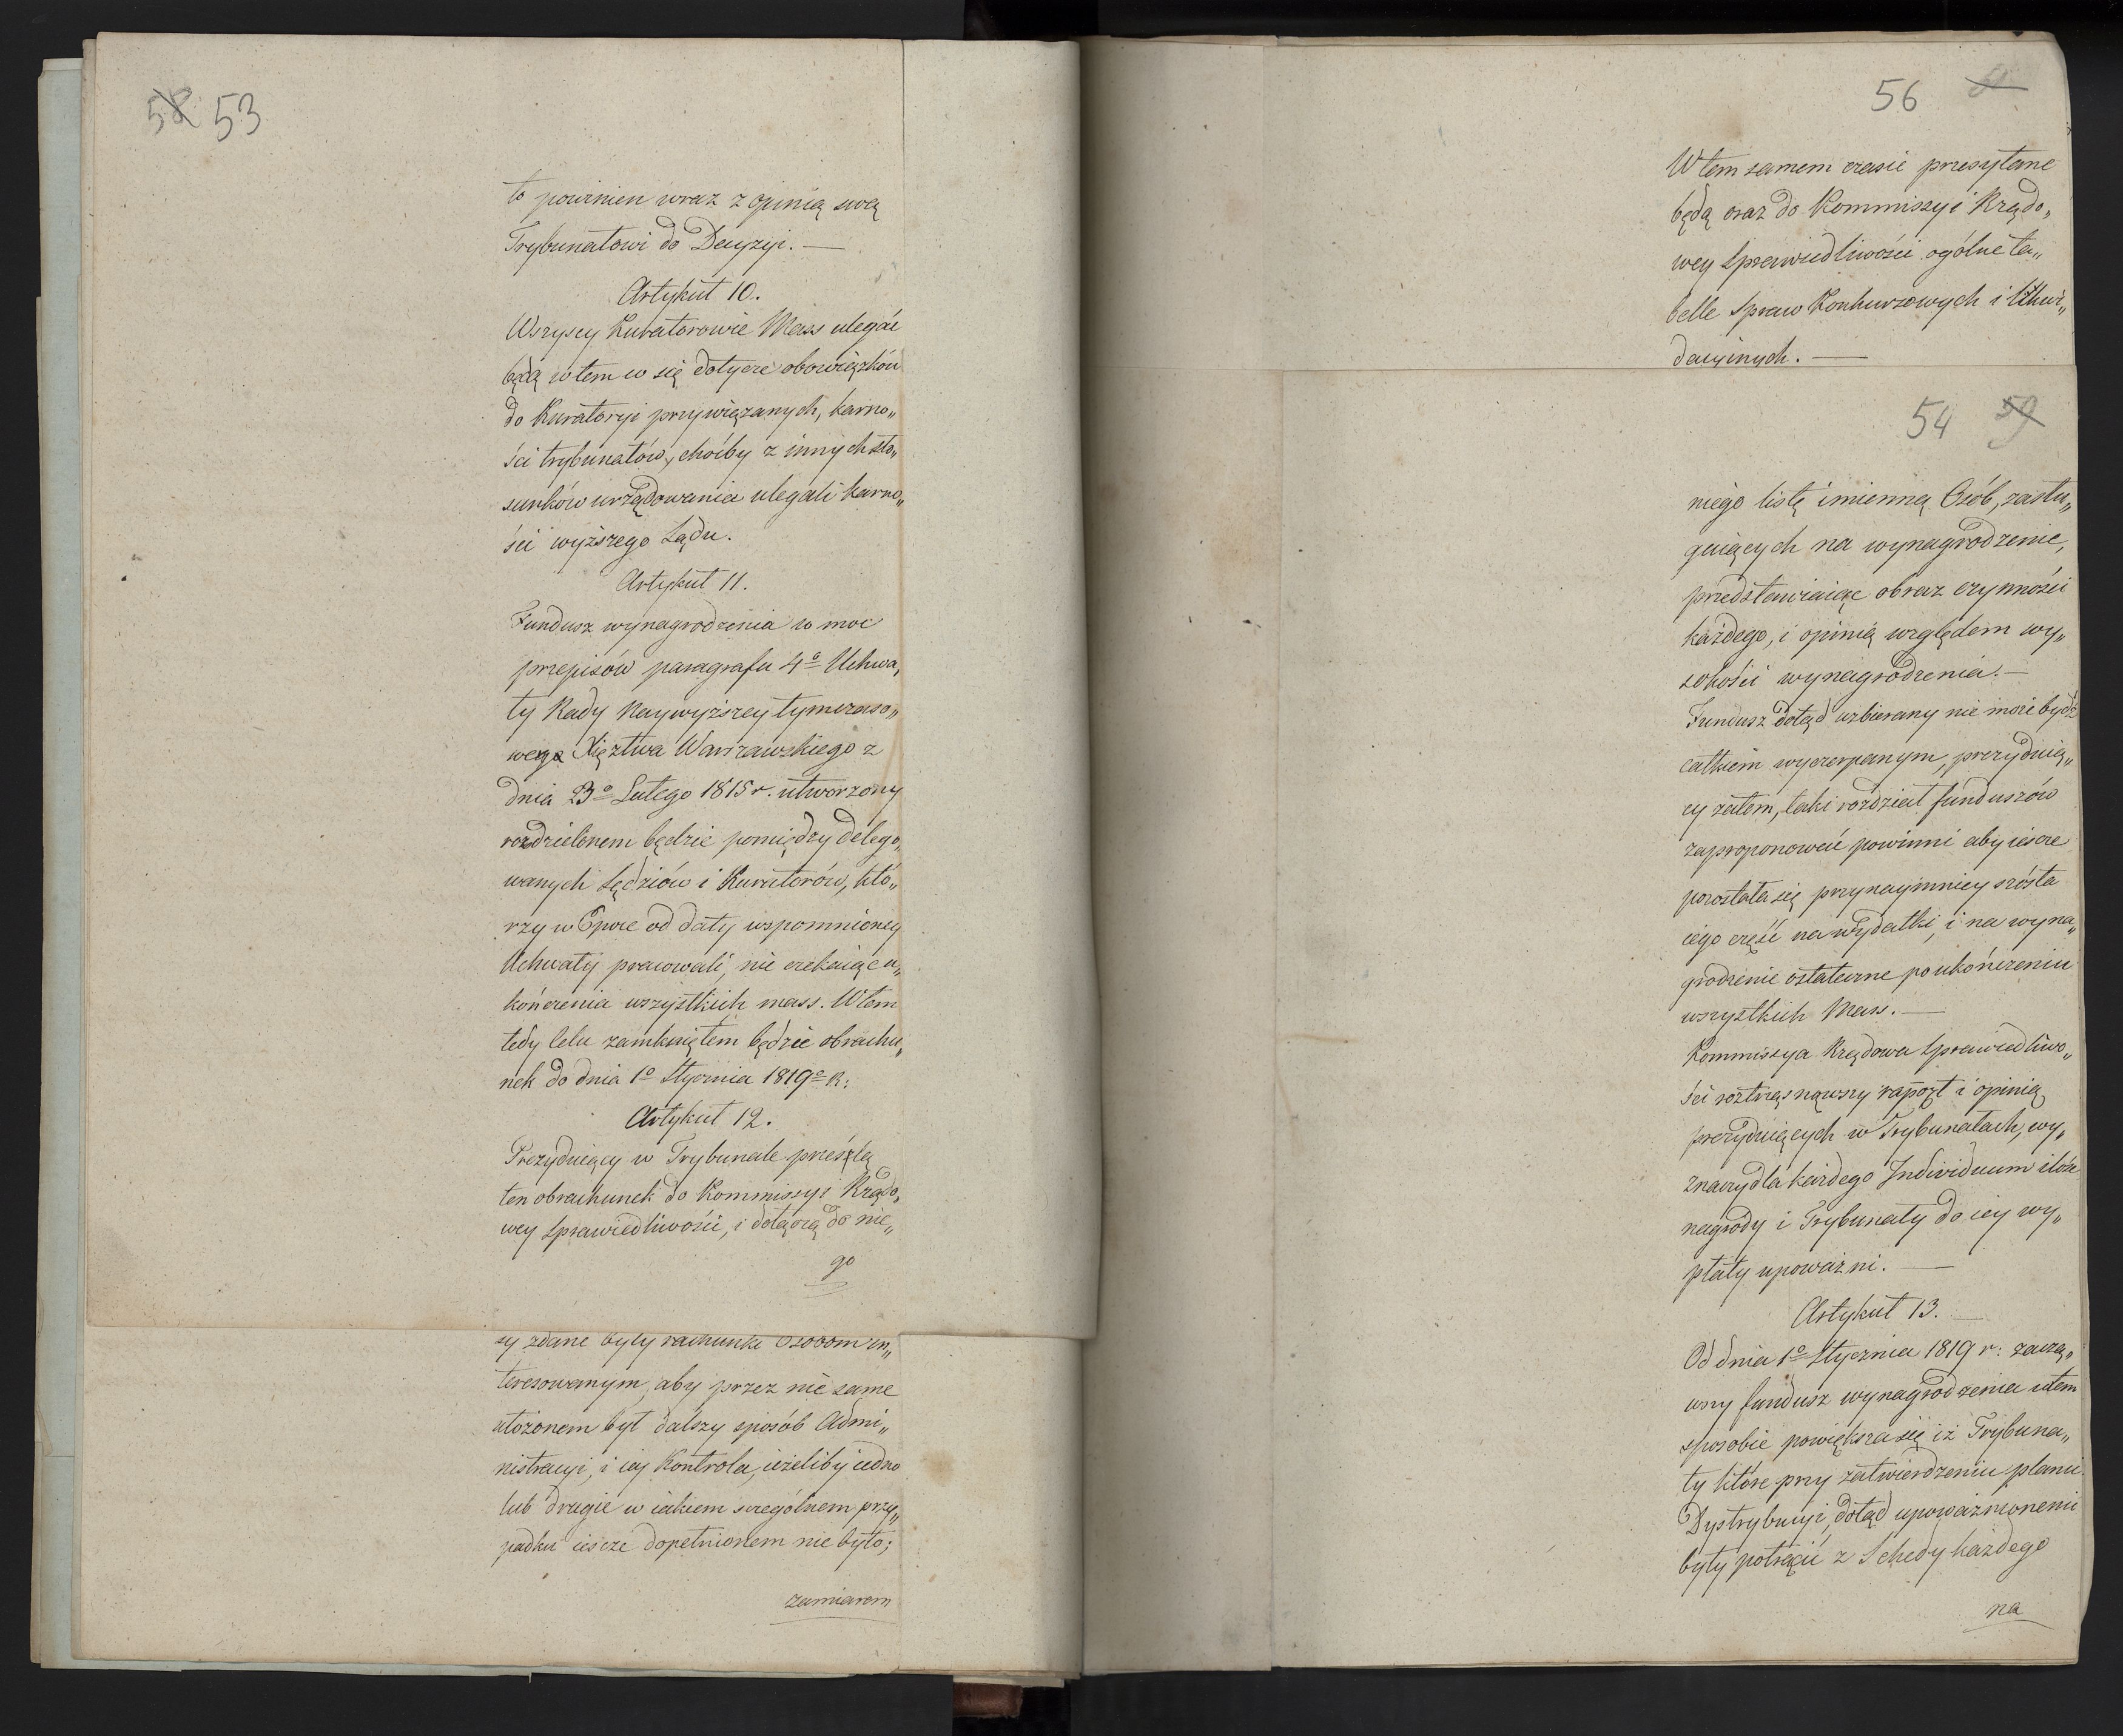 58 53
to powinien wraz z opinią swą
Trybunałowi do Decyzyi. —
Artykuł 10.
Wszyscy Kuratorowie Mass ulegać
będą w tem w się dotycze obowiązków
do Kuratoryi przywiązanych, karno„
ści trybunałów, choćby z innych sto„
sunków urzędowania ulegali karno„
ści wyższego Sądu.
Artykuł 11.
Fundusz wynagrodzenia w moc
przepisów paragrafu 4º Uchwa„
ły Rady Naywyższey tymczaso„
wego Xięztwa Warszawskiego z
dnia 23º Lutego 1815 r. utworzony
rozdzielonem będzie pomiędzy delego„
wanych Sędziów i Kuratorów, któ„
rzy w Epoce od daty wspomnioney
Uchwały pracowali, nie czekaiąc u„
kończenia wszystkich mass. W tem
tedy Celu zamkniętem będzie obrachu„
nek do dnia 1º Stycznia 1819º R:
Artykuł 12.
Prezyduiący w Trybunale prześlą
ten obrachunek do Kommissyi Rządo„
wey Sprawiedliwości, i dołączą do nie„
go
sy zdane były rachunki Osobom in„
teresowanym, aby przez nie same
ułożonem był dalszy sposób Admi„
nistracyi, i iey Kontrola, ieżeliby iedno
lub drugie w iakiem szczególnem przy„
padku iescze dopełnionem nie było;
zamiarem
56
W tem samem czasie przesyłane
będą oraz do Kommissyi Rządo„
wey Sprawiedliwości ogólne ta„
belle Spraw Konkurzowych i Likwi„
dacyinych. —
54 59
niego listę imienną Osób, zasłu„
guiących na wynagrodzenie,
przedstawiaiąc obraz czynności
każdego, i opinią względem wy„
sokości wynagrodzenia. —
Fundusz dotąd uzbierany nie może bydź
całkiem wyczerpanym, prezyduią„
cy zatem, taki rozdział funduszów
zaproponować powinni aby iescze
pozostała się przynaymniey szósta
iego część na wydatki, i na wyna„
grodzenie ostateczne po ukończeniu
wszystkich Mass. —
Kommissya Rządowa Sprawiedliwo„
ści roztrząsnąwszy raport i opinią
prezyduiących w Trybunałach, wy„
znaczy dla każdego Individuum ilość
nagrody i Trybunały do iey wy„
płaty upoważni. —
Artykuł 13. —
Od dnia 1º Stycznia 1819 r: zaczą„
wszy fundusz wynagrodzenia w tem
sposobie powiększa się iż Trybuna„
ły które przy zatwierdzeniu planu
Dystrybucyi, dotąd upoważnionemi
były potrącić z Schedy każdego
na